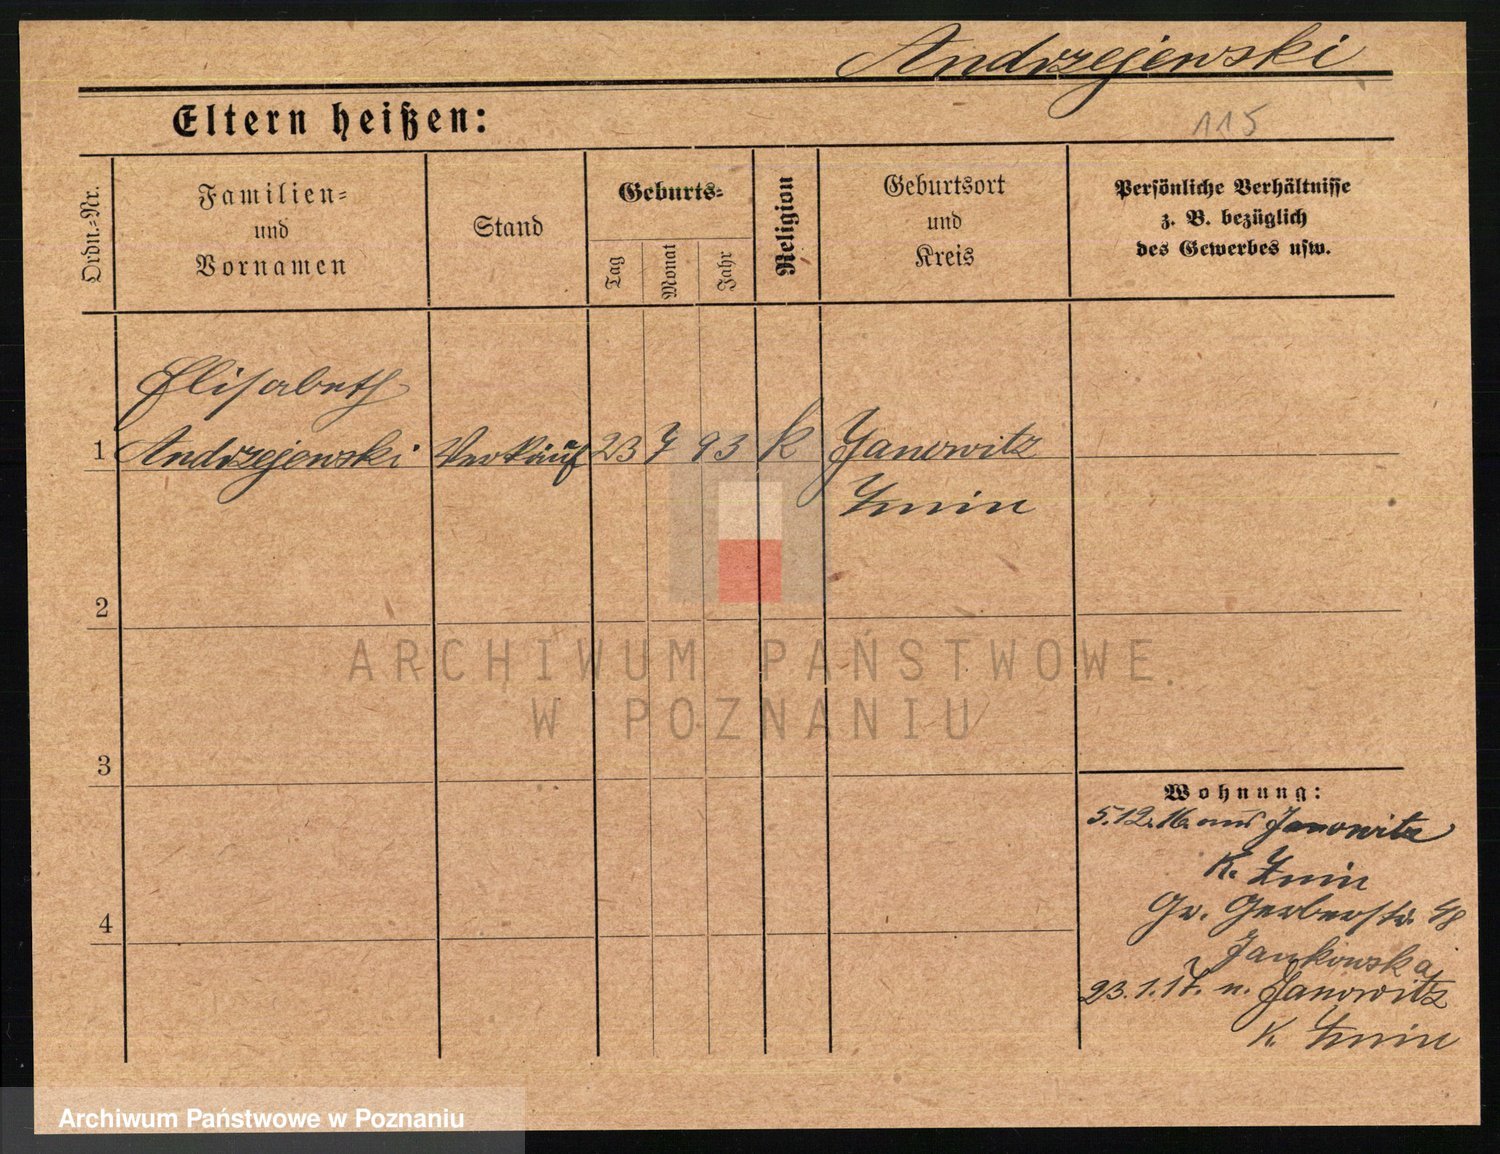 Andrzejewski
Eltern heißen:
115
Ordn.=Nr.
Familien=
und
Vornamen
Stand
Geburts=
Tag
Monat
Jahr
Religion
Geburtsort
und
Kreis
Persönliche Verhältnisse
z. B. bezüglich
des Gewerbes usw.
Elisabeth
1 Andrzejewski Verkäuf 23 7 93 k Janowitz
Znin
2
3
4
Wohnung:
5.12.16. aus Janowitz
K. Znin
Gr. Gerberstr. 48
Jankowska
23.1.17. n. Janowitz
K. Znin
ARCHIWUM PAŃSTWOWE
W POZNANIU
Archiwum Państwowe w Poznaniu